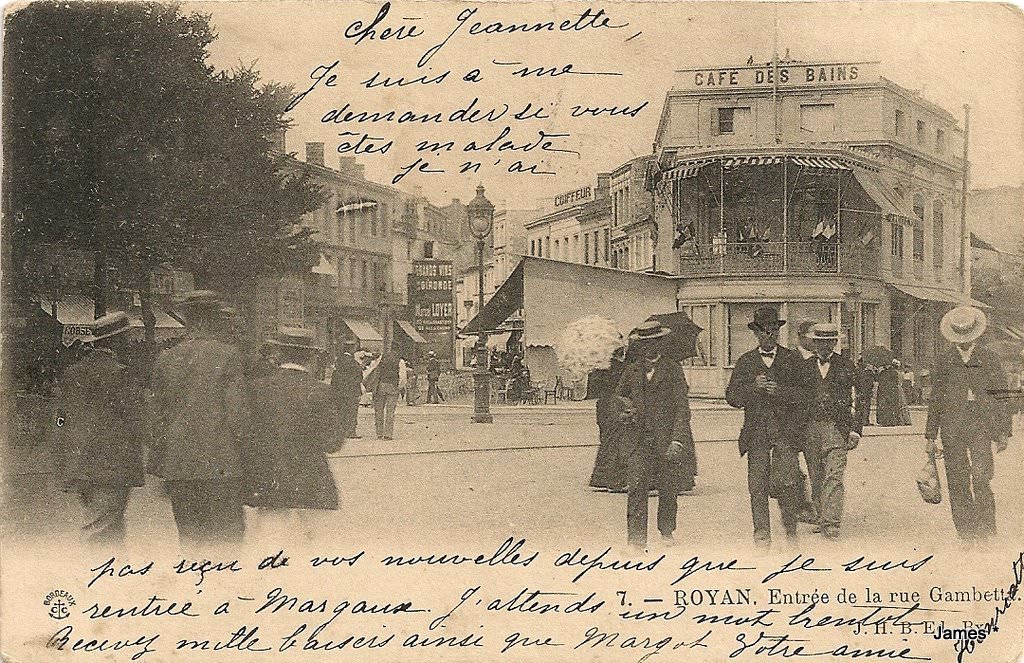 chère Jeannette,
Je suis à me
demander si vous
êtes malade
je n'ai
CAFÉ DES BAINS
COIFFEUR
GRANDS VINS
GIRONDE
Marcel LOYER
pas reçu de vos nouvelles depuis que je suis
rentrée à Margaux. J'attends un mot bientôt
Recevez mille baisers ainsi que Margot Votre amie
Henriette
7. — ROYAN. Entrée de la rue Gambetta
J. H. B. Ed. Bx
BORDEAUX
James